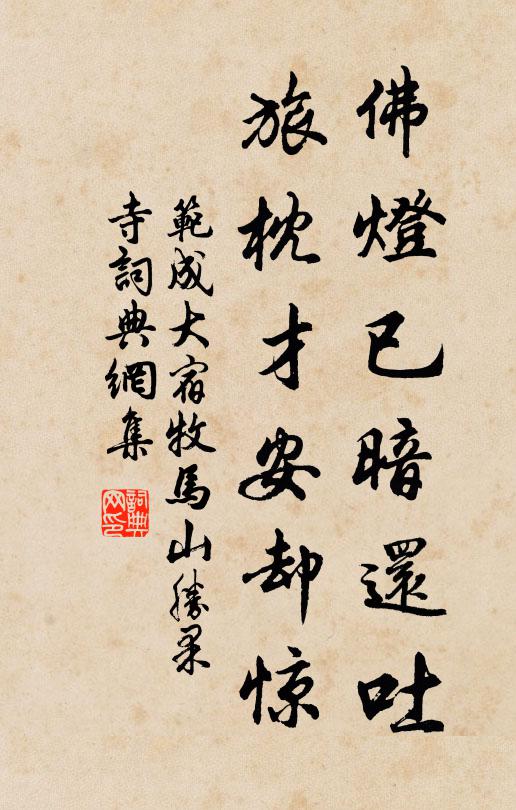 佛燈已暗還吐
旅枕才安却惊
範成大宿牧馬山勝果
寺詞典網集
詞典网印